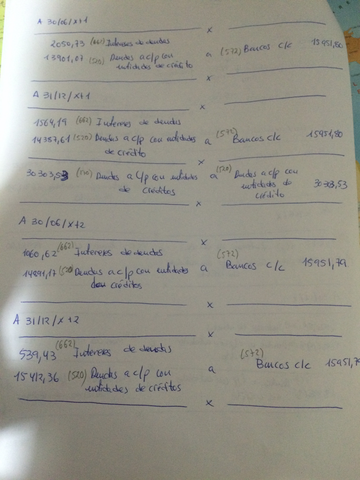 A 30/06/x+1
x
2050,73 (662) Intereses de deudas
13901,07 (520) Deudas a c/p con a (572) Bancos c/c 15951,80
entidades de crédito
x
A 31/12/x+1
x
1564,19 (662) Intereses de deudas
14387,61 (520) Deudas a c/p con entidades a (572) Bancos c/c 15951,80
de crédito
x
30303,53 (170) Deudas a l/p con entidades a (520) Deudas a c/p con
de créditos entidades de 30303,53
crédito
x
A 30/06/x+2
x
1060,62 (662) Intereses de deudas (572)
14891,17 (520) Deudas a c/p con entidades a Bancos c/c 15951,79
de créditos
x
A 31/12/x+2
x
539,43 (662) Intereses de deudas (572)
15412,36 (520) Deudas a c/p con a Bancos c/c 15951,7
entidades de créditos
x